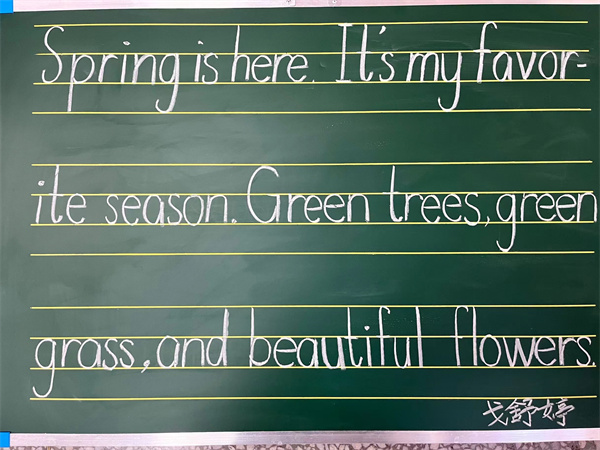 Spring is here. It's my favor-
ite season. Green trees, green
grass, and beautiful flowers.
戈舒婷